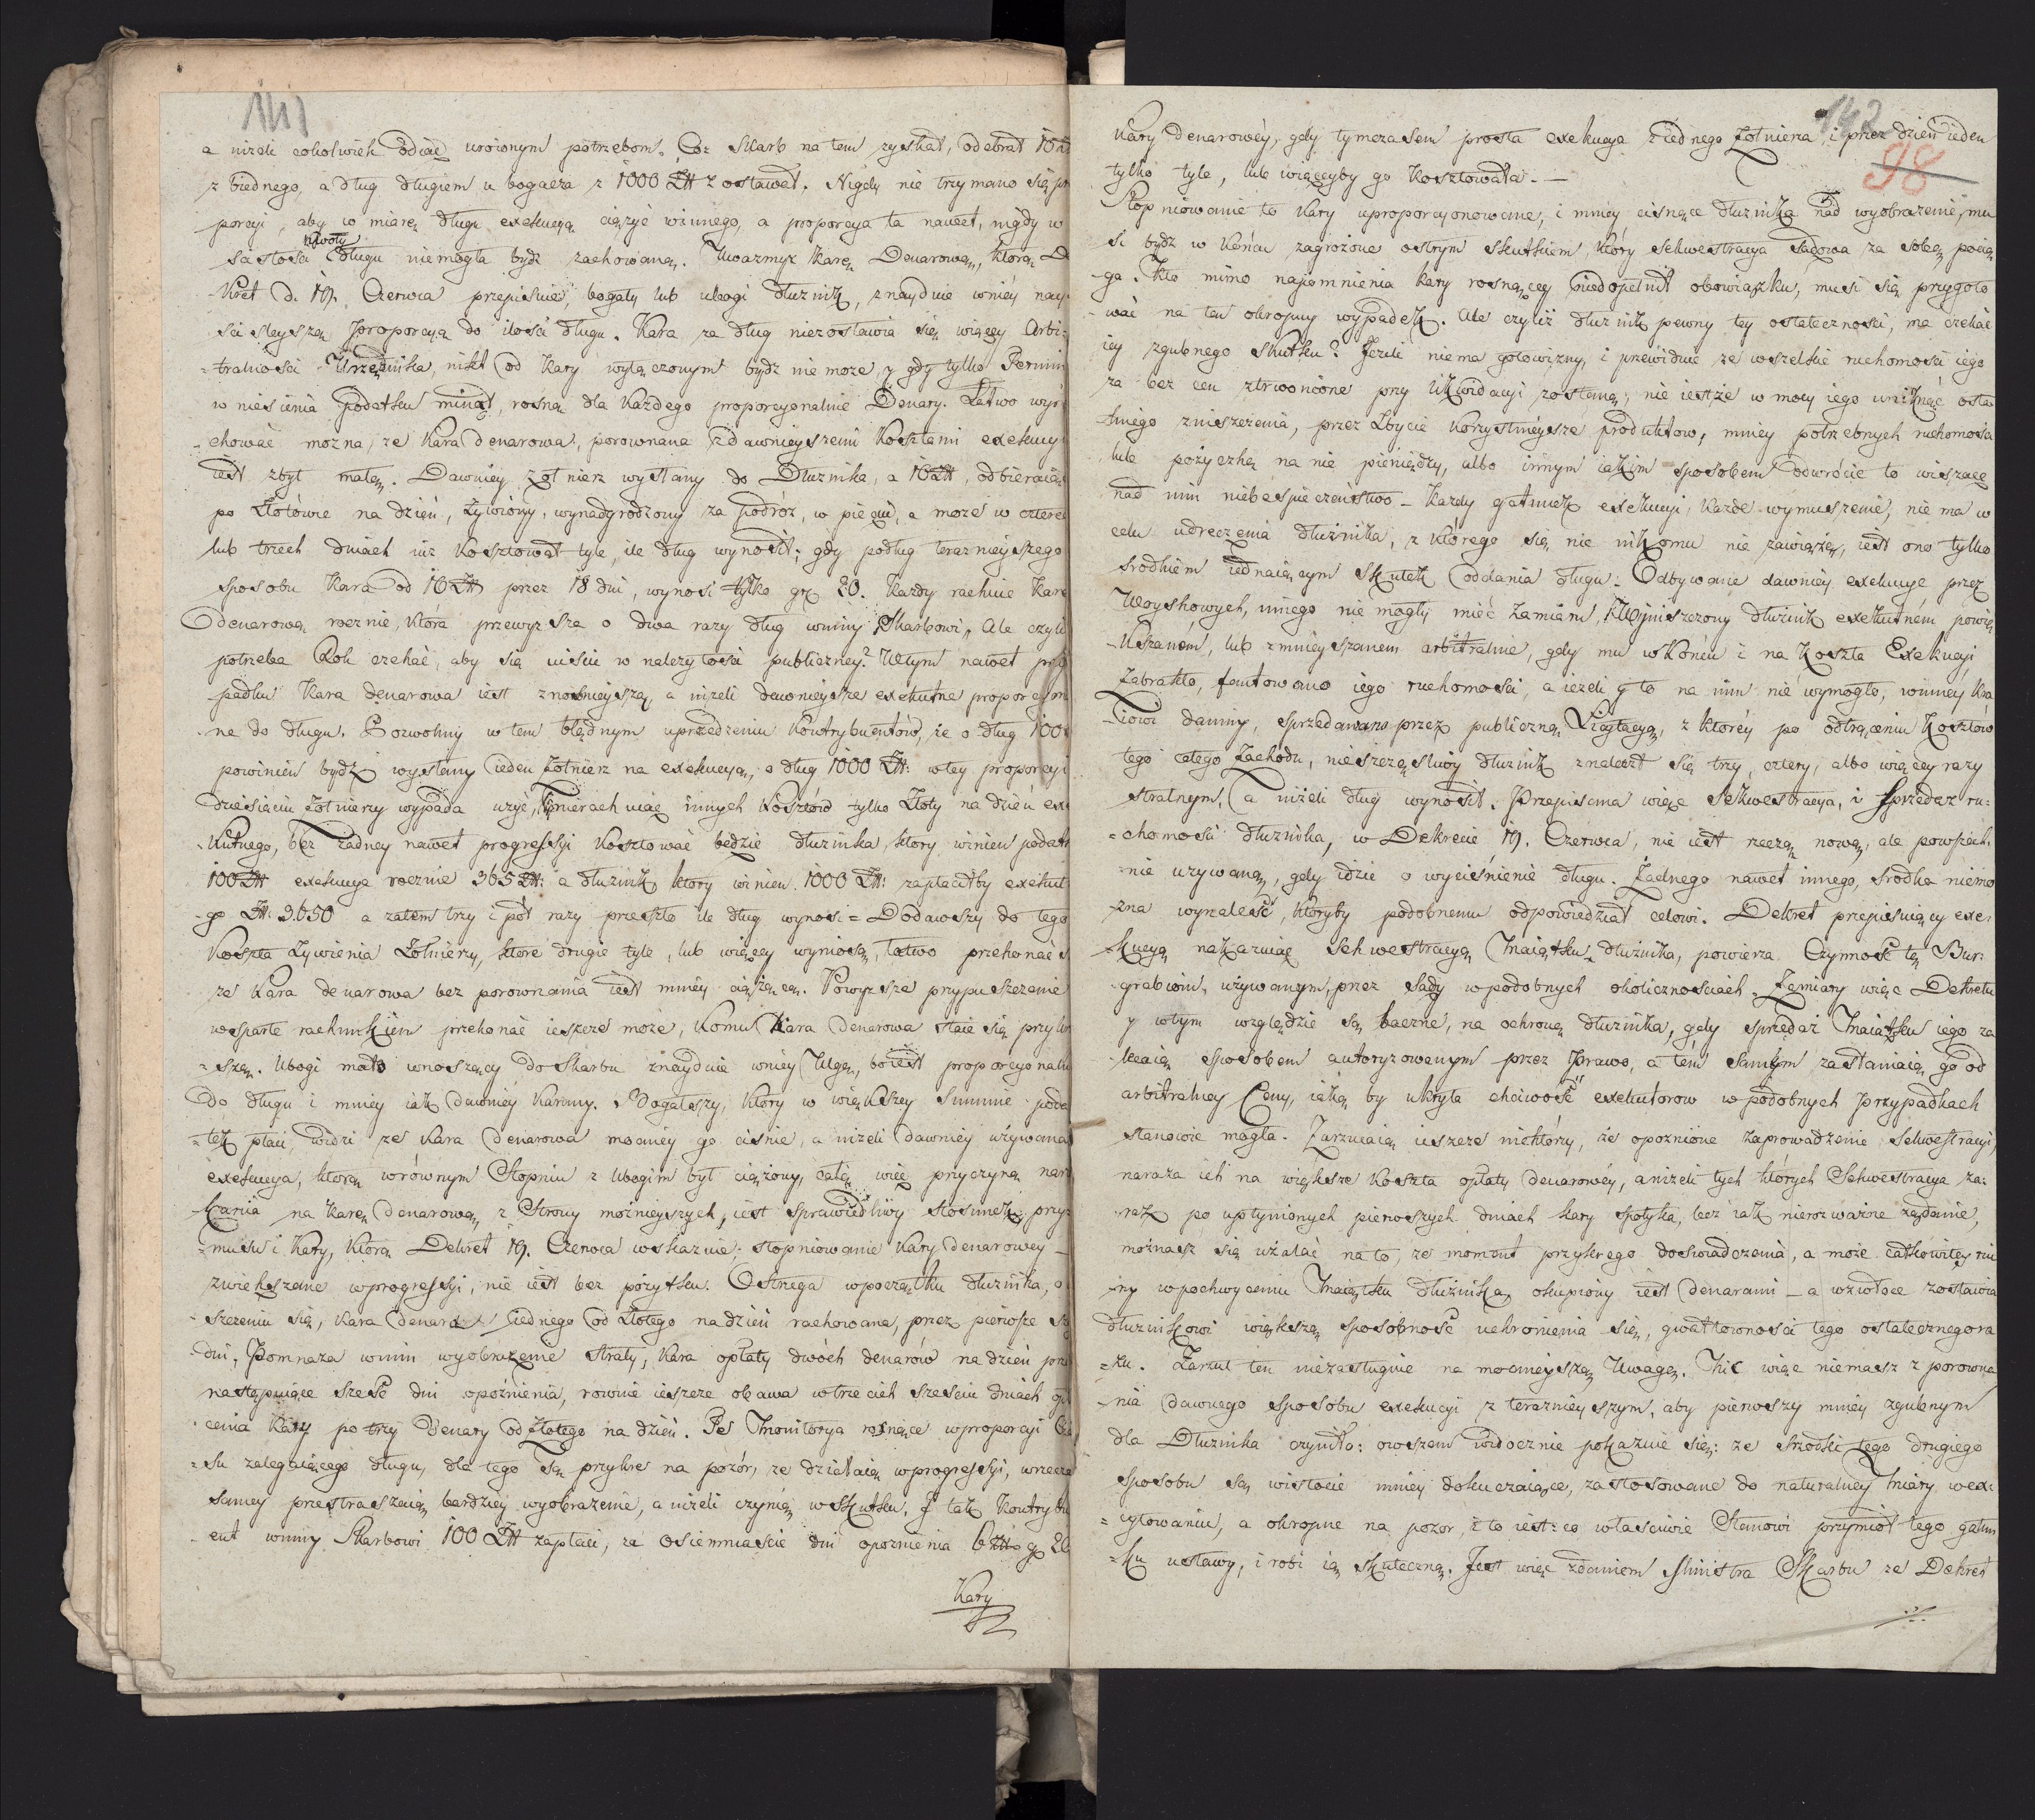 141
a niżeli cokolwiek odiąć swoionym potrzebom. Co: Skarb na tem zyskał, odebrał 16
z biednego, a dług długiem u bogacza z 1000 Zł zostawał. Nigdy nie trzymano się
porcyi, aby w miarę długu exekucya ciążyć winnego, a proporcya ta nawet, nigdy w
kwoty
długu niemogła bydź zachowaną. Uważmyż karę Denarową, którą De
kret d. 19. Czerwca przepisuie, bogaty lub ubogi dłużnik, znayduie wniéy nay
ścisleyszą proporcyą do ilości długu. Kara za dług niezostawia się więcéy Arbi
=tralności Urzędnika, nikt od kary wyłączonym bydź nie może, y gdy tylko Termin
wniesienia podatku minął, rosną dla każdego proporcyonalnie Denary. Łatwo wyra
-chować można, że kara denarowa, porownana z dawnieyszemi kosztami exekucyi
iest zbyt małą. Dawniey żołnierz wysłany do Dłużnika, a 16 Zł, odbieraiąc
po Złotówce na dzień, żywiony, wynadgrodzony za podróż, w pięciu, a może w czterech
lub trzech dniach iuż kosztował tyle, ile dług wynosił; gdy podług teraznieyszego
sposobu kara od 16 Zł przez 18 dni, wynosi tylko gr 20. Każdy rachuie karę
denarową rocznie, która przewyższa o dwa razy dług winny Skarbowi, Ale czyli
potrzeba Rok czekać, aby się uiścić w należytości publiczney? Wtym nawet przy
padku kara denarowa iest znośnieyszą, a niżeli dawnieysze exekutne proporcyonal
ne do długu. Pozwolmy w tem błędnym uprzedzeniu kontrybuentów, że o dług 100
powinien bydź wysłany ieden żołnierz na exekucyą, o dług 1000 Zł: w tey proporcyi
dziesięciu żołnierzy wypada użyć, nierachuiąc innych kosztów tylko Złoty na dzień exe
kutnego, bez żadney nawet progressyi kosztować będzie dłużnika, który winien podatku
100 Zł exekucya rocznie 365 Zł: a dłużnik który winien 1000 Zł: zapłaciłby exekut
go Zł: 3650 a zatem trzy i pół razy przeszło ile dług wynosi = Dodawszy do tego
koszta żywienia żołnierzy, które drugie tyle, lub więcéy wyniosą, łatwo przekonać s
że kara denarowa bez porownania iest mniéy ciążącą. Powyższe przypuszczenie
wsparte rachunkiem przekonać ieszcze może, komu kara denarowa staie się przykr
=szą. Ubogi mało wnoszący do skarbu znayduie wniey Ulgę, bo iest proporcyonaln
do długu i mniey iak dawniéy karany. Bogatszy, który w większey Summie poda
=tek płaci, widzi że kara denarowa mocniey go ciśnie, a niżeli dawniey używana
exekucya, którą worównym Stopniu z Ubogim był ciążony, całą więc przyczyną narze
kania na karę denarową, z Strony możnieyszych, iest sprawiedliwy stosunek przy=
=musu i kary, którą Dekret 19. Czerwca wskazuie; stopniowanie kary denarowey
zwiększane wprogressyi, nie iest bez pożytku. Ostrzega wpoczątku dłużnika, o
szczeniu się, kara denara iednego od złotego na dzień rachowana, przez pierwsze sz
dni, Pomnaża wnim wyobrażenie straty, kara opłaty dwóch denarów na dzień prze
następuiące sześć dni opóźnienia, rownie ieszcze obawa wtrzecich sześciu dniach opła
cenia kary po trzy Denary od złotego na dzień. Te Monitorya rosnące wproporcyi Cza
=su zalegaiącego długu, dla tego są przykre na pozór, że działaią wprogressyi, wrzeczy
samey przestraszaią bardziey wyobrażenie, a niżeli czynią wskutku, y tak kontrybu
ent winny Skarbowi 100 Zł zapłaci, za osiemnaście dni opoznienia 6 zł gr 20
Kary
142
98
kary denarowéy, gdy tymczasem prosta exekucya iednego żołnierza, i przez dzień ieden
tylko tyle, lub więcéyby go kosztowała. —
Stopniowanie to kary uproporcyonowane, i mniey cisnące dłużnika nad wyobrażenie, mu
si bydź w końcu zagrożone ostrym skutkiem, który sekwestracya sądowa za sobą pocią
ga. Kto mimo napomnienia kary rosnącey niedopełnił obowiązku, musi się przygoto
wać na ten okropny wypadek. Ale czyliż dłużnik pewny tey ostateczności, ma czekać
iey zgubnego skutku? Jezeli niema gotowizny, i przewiduie że wszelkie ruchomości iego
za bez cen ztrwonione przy likwidacyi zostaną, nie iestże w mocy iego uniknąć osta
tniego zniszczenia, przez zbycie korzystnieysze produktow, mniey potrzebnych ruchomości
lub pożyczkę na nie pieniędzy, albo innym iakim sposobem odwrócić to wiszące
nad nim niebespieczeństwo - każdy gatunek exekucyi, każde wymuszenie, nie ma w
celu udręczenia dłużnika, z którego się nic nikomu nie zawiąże, iest ono tylko
środkiem iednaiącym skutek oddania długu. Odbywane dawniey exekucye przez
Woyskowych, innego nie mogły mieć zamiaru, zniszczony dłużnik exekutném powię
kszanem, lub zmnieyszanem arbitralnie, gdy mu wkońcu i na koszta Exekucyi
zabrakło, fantowano iego ruchomości, a ieżeli y to na nim nie wymogło, winney kra
iowi daniny, sprzedawano przez publiczną Licytacyą, z któréy po odtrąceniu kosztów
tego całego zachodu, nieszczęśliwy dłużnik znalazł się trzy, cztery, albo więcéy razy
stratnym, a niżeli dług wynosił. Przepisana więc sekwestracya, i sprzedaż ru=
=chomości dłużnika, w Dekrecie 19. Czerwca, nie iest rzeczą nową, ale powszech
nie używaną, gdy idzie o wyciśnienie długu. Żadnego nawet innego, środka niemo
żna wynaleść, któryby podobnemu odpowiedział celowi. Dekret przepisuiący exe
kucyą nakazuiąc sekwestracyą Maiątku dłużnika, powierza Czynność tę Bur
grabiom, używanym, przez Sądy wpodobnych okolicznościach. Zamiary więc Dekretu
y wtym względzie są baczne, na ochronę dłużnika, gdy sprzedaż Maiątku iego za
lecaią sposobem autoryzowanym przez Prawo, a tém samym zasłaniaią go od
arbitralney Ceny, iaką by ukryta chciwość exekutorow wpodobnych Przypadkach
stanowić mogła. Zarzucaią ieszcze niektórzy, że opoznione zaprowadzenie Sekwestracyi,
naraża ich na większe koszta opłaty denarowéy, a niżeli tych których Sekwestracya za=
raz po upłynionych pierwszych dniach kary spotyka, bez iak nierozważne żądanie,
możnasz się użalać na to, że moment przykrego doświadczenia, a może całkowitey rui
ny wpochwyceniu Maiątku dłużnika, okupiony iest denarami - a wzwłoce zostawia
dłużnikowi większą sposobność uchronienia się, gwałtowności tego ostatecznego ra
=zu. Zarzut ten niezasługuie na mocnieyszą Uwagę. Nic więc niemasz z porowna
nia dawnego sposobu exekucyi z teraznieyszym, aby pierwszy mniey zgubnym
dla Dłużnika czyniło: owszem widocznie pokazuie się: że środki tego drugiego
sposobu są wistocie mniey dokuczaiące, zastosowane do naturalney Miary wex
=cytowaniu, a okropne na pozor, i to iest: co właściwie Stanowi przymiot tego gatun
=ku ustawy, i robi ią skuteczną. Jest więc zdaniem Ministra Skarbu że Dekret